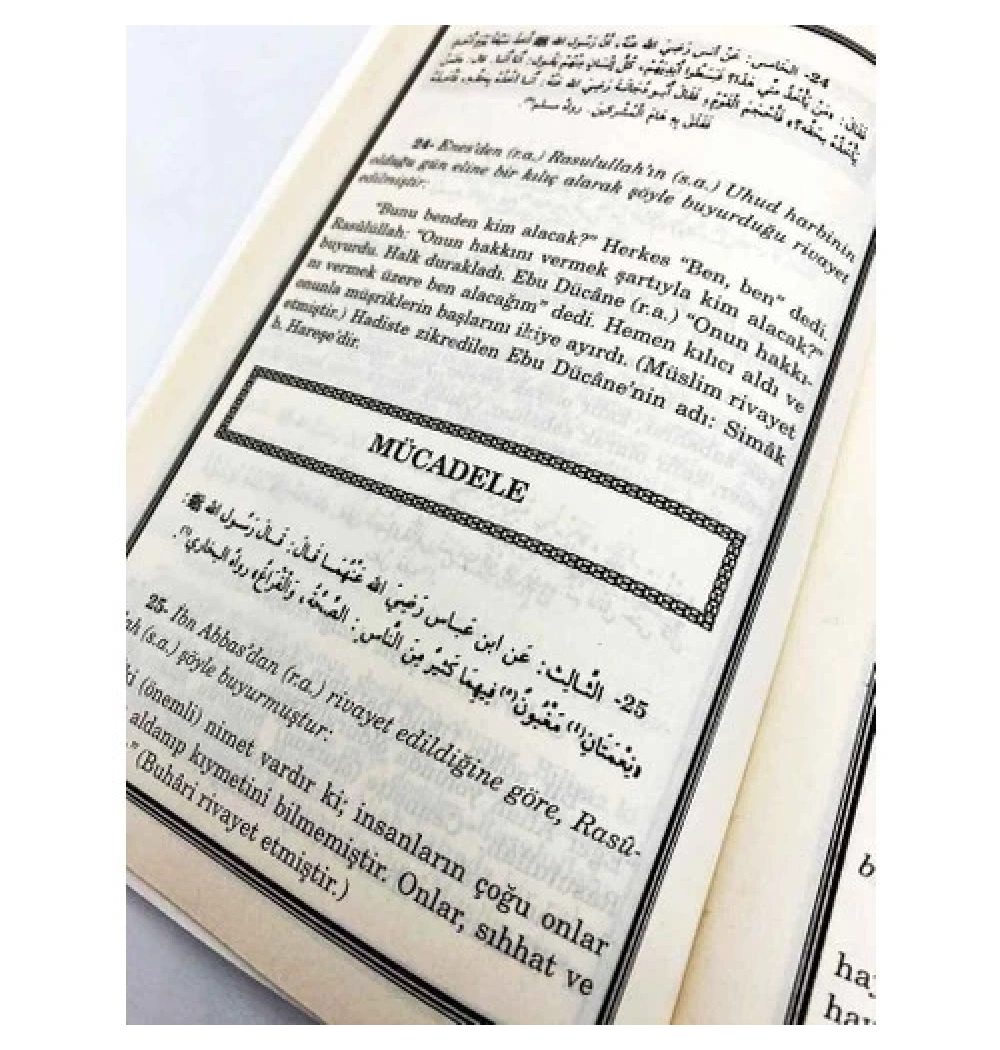 24- الخامس: عَنْ أنسٍ رَضِيَ الله عَنْهُ، أنَّ رَسُولَ الله ﷺ أخذ سَيْفاً يَوْمَ أُحُدٍ
فَقَالَ: «مَنْ يَأْخُذُ مِنِّي هَذَا؟ فَبَسَطُوا أَيْدِيَهُمْ، كُلُّ إِنْسَانٍ مِنْهُمْ يَقُولُ: أَنَا أَنَا. قال: «فَمَنْ
يَأْخُذُهُ بِحَقِّه؟» فَأَحْجَمَ الْقَوْمُ، فَقَالَ أَبُو دُجَانَةَ رَضِيَ الله عَنْهُ: أنا آخُذُهُ بِحَقِّهِ، فَأَخَذَهُ
فَفَلَقَ بِهِ هَامَ الْمُشْرِكِينَ. رواهُ مسلم
24- Enes'den (r.a.) Rasulullah'ın (s.a.) Uhud harbinin
olduğu gün eline bir kılıç alarak şöyle buyurduğu rivayet
edilmiştir:
"Bunu benden kim alacak?" Herkes "Ben, ben" dedi.
Rasûlullah: "Onun hakkını vermek şartıyla kim alacak?"
buyurdu. Halk durakladı. Ebu Dücâne (r.a.) "Onun hakkı-
nı vermek üzere ben alacağım" dedi. Hemen kılıcı aldı ve
onunla müşriklerin başlarını ikiye ayırdı. (Müslim rivayet
etmiştir.) Hadiste zikredilen Ebu Dücâne'nin adı: Simâk
b. Hareşe'dir.
MÜCADELE
25- الثَّالِث: عَن ابن عَباس رَضِيَ الله عَنْهُمَا قَالَ: قَالَ رَسُول الله ﷺ:
«نِعْمَتَانِ(١) مَغْبُونٌ(٢) فِيهِمَا كَثِيرٌ مِنَ النَّاس: الصِّحَّةُ، وَالْفَرَاغُ» رواهُ البخاري(٣).
25- İbn Abbas'dan (r.a.) rivayet edildiğine göre, Rasû-
ah (s.a.) şöyle buyurmuştur:
ki (önemli) nimet vardır ki; insanların çoğu onlar
aldanıp kıymetini bilmemiştir. Onlar, sıhhat ve
." (Buhâri rivayet etmiştir.)
b
hay
hav